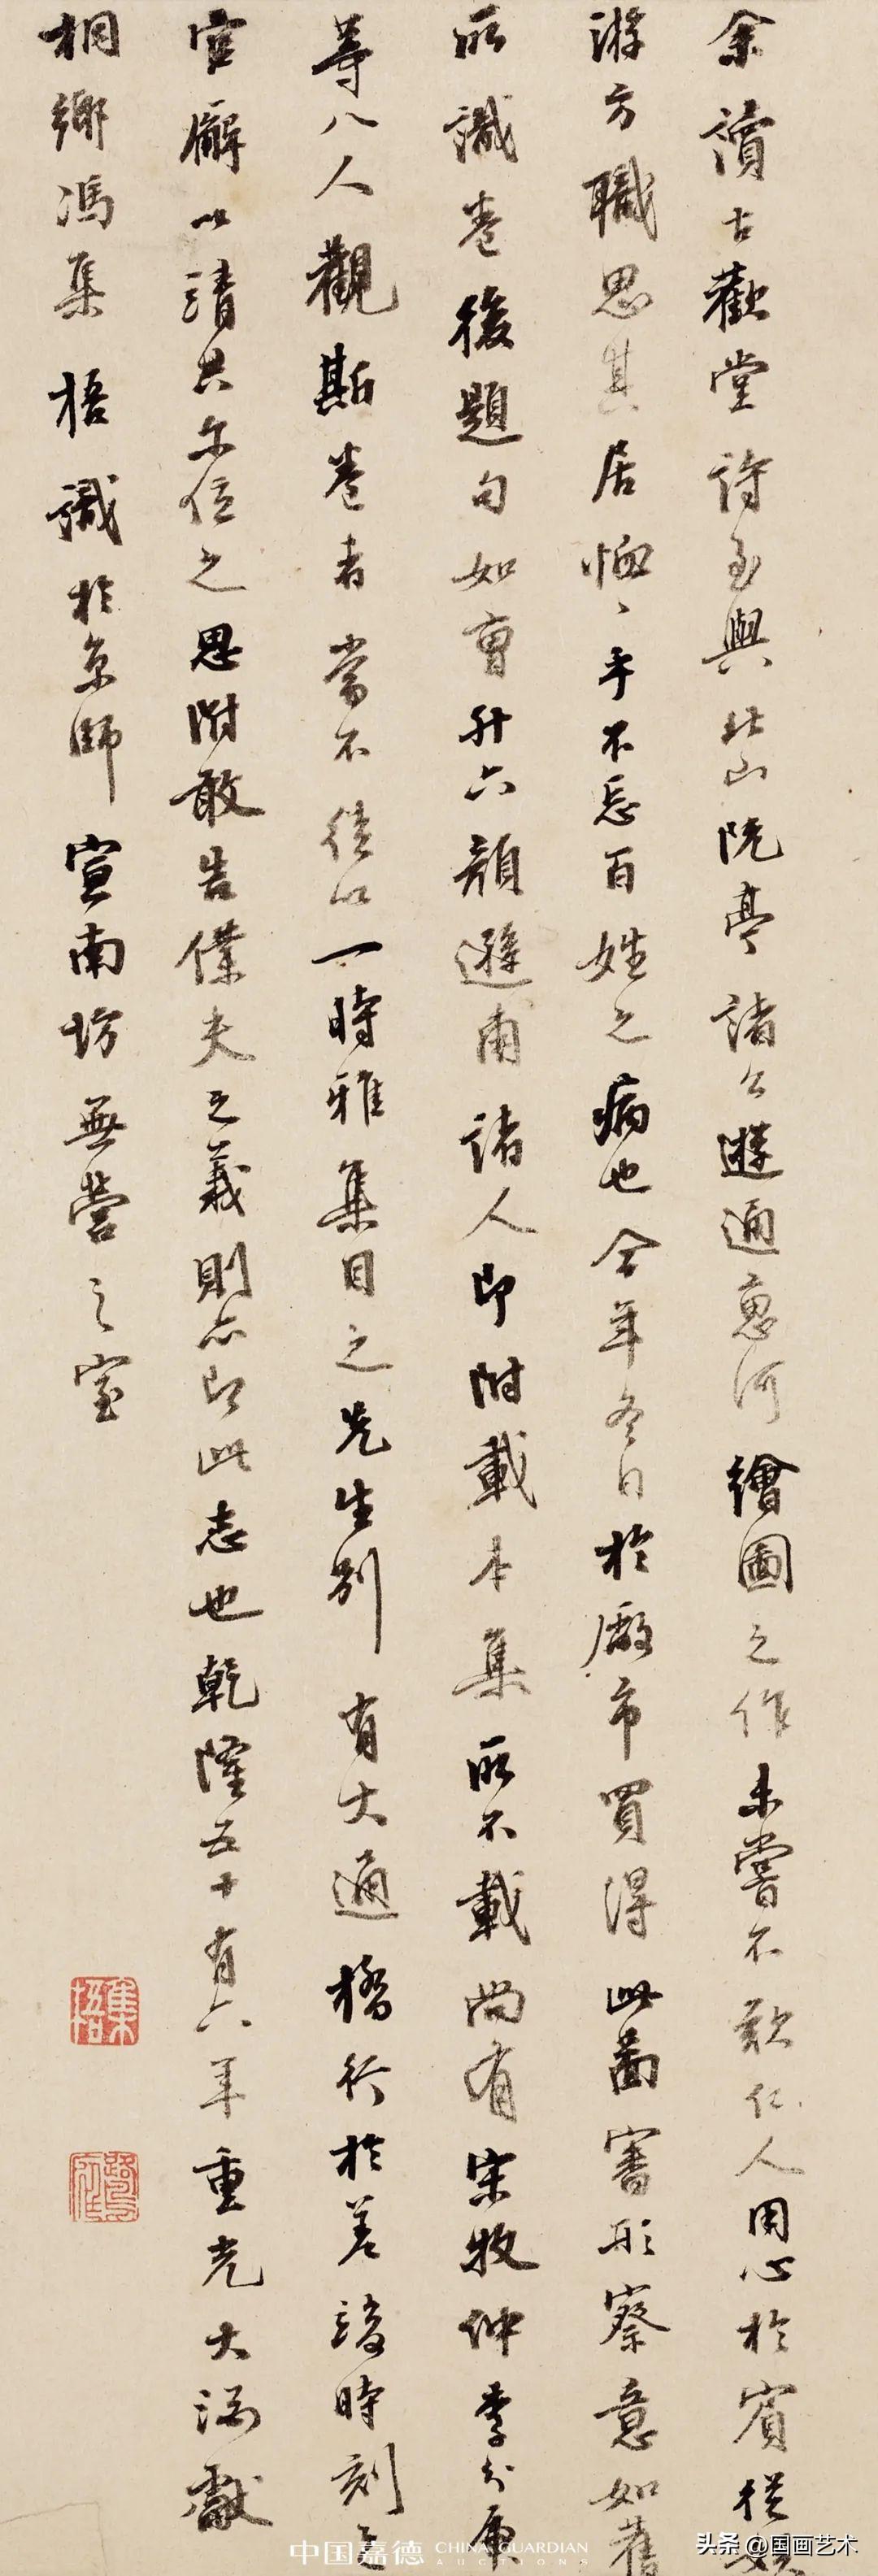 余讀古歡堂詩至與北山阮亭諸公遊通惠河繪圖之作未嘗不歎仁人用心於賓從娛
游方職思其居恤〻乎不忘百姓之病也今年冬日於廠市買得此圖審形察意如舊
所識卷後題句如曹升六顏遜甫諸人即附載本集所不載尚有宋牧仲李
等八人觀斯卷者當不徒以一時雅集目之先生別有大通橋行於差竣時刻之
官廨以靖共尔位之思附敢告僕夫之義則亦即此志也乾隆五十有六年重光大淵獻
桐鄉馮集梧識於京師宣南坊無營之室
集梧
中国嘉德 CHINA GUARDIAN AUCTIONS
头条 @国画艺术